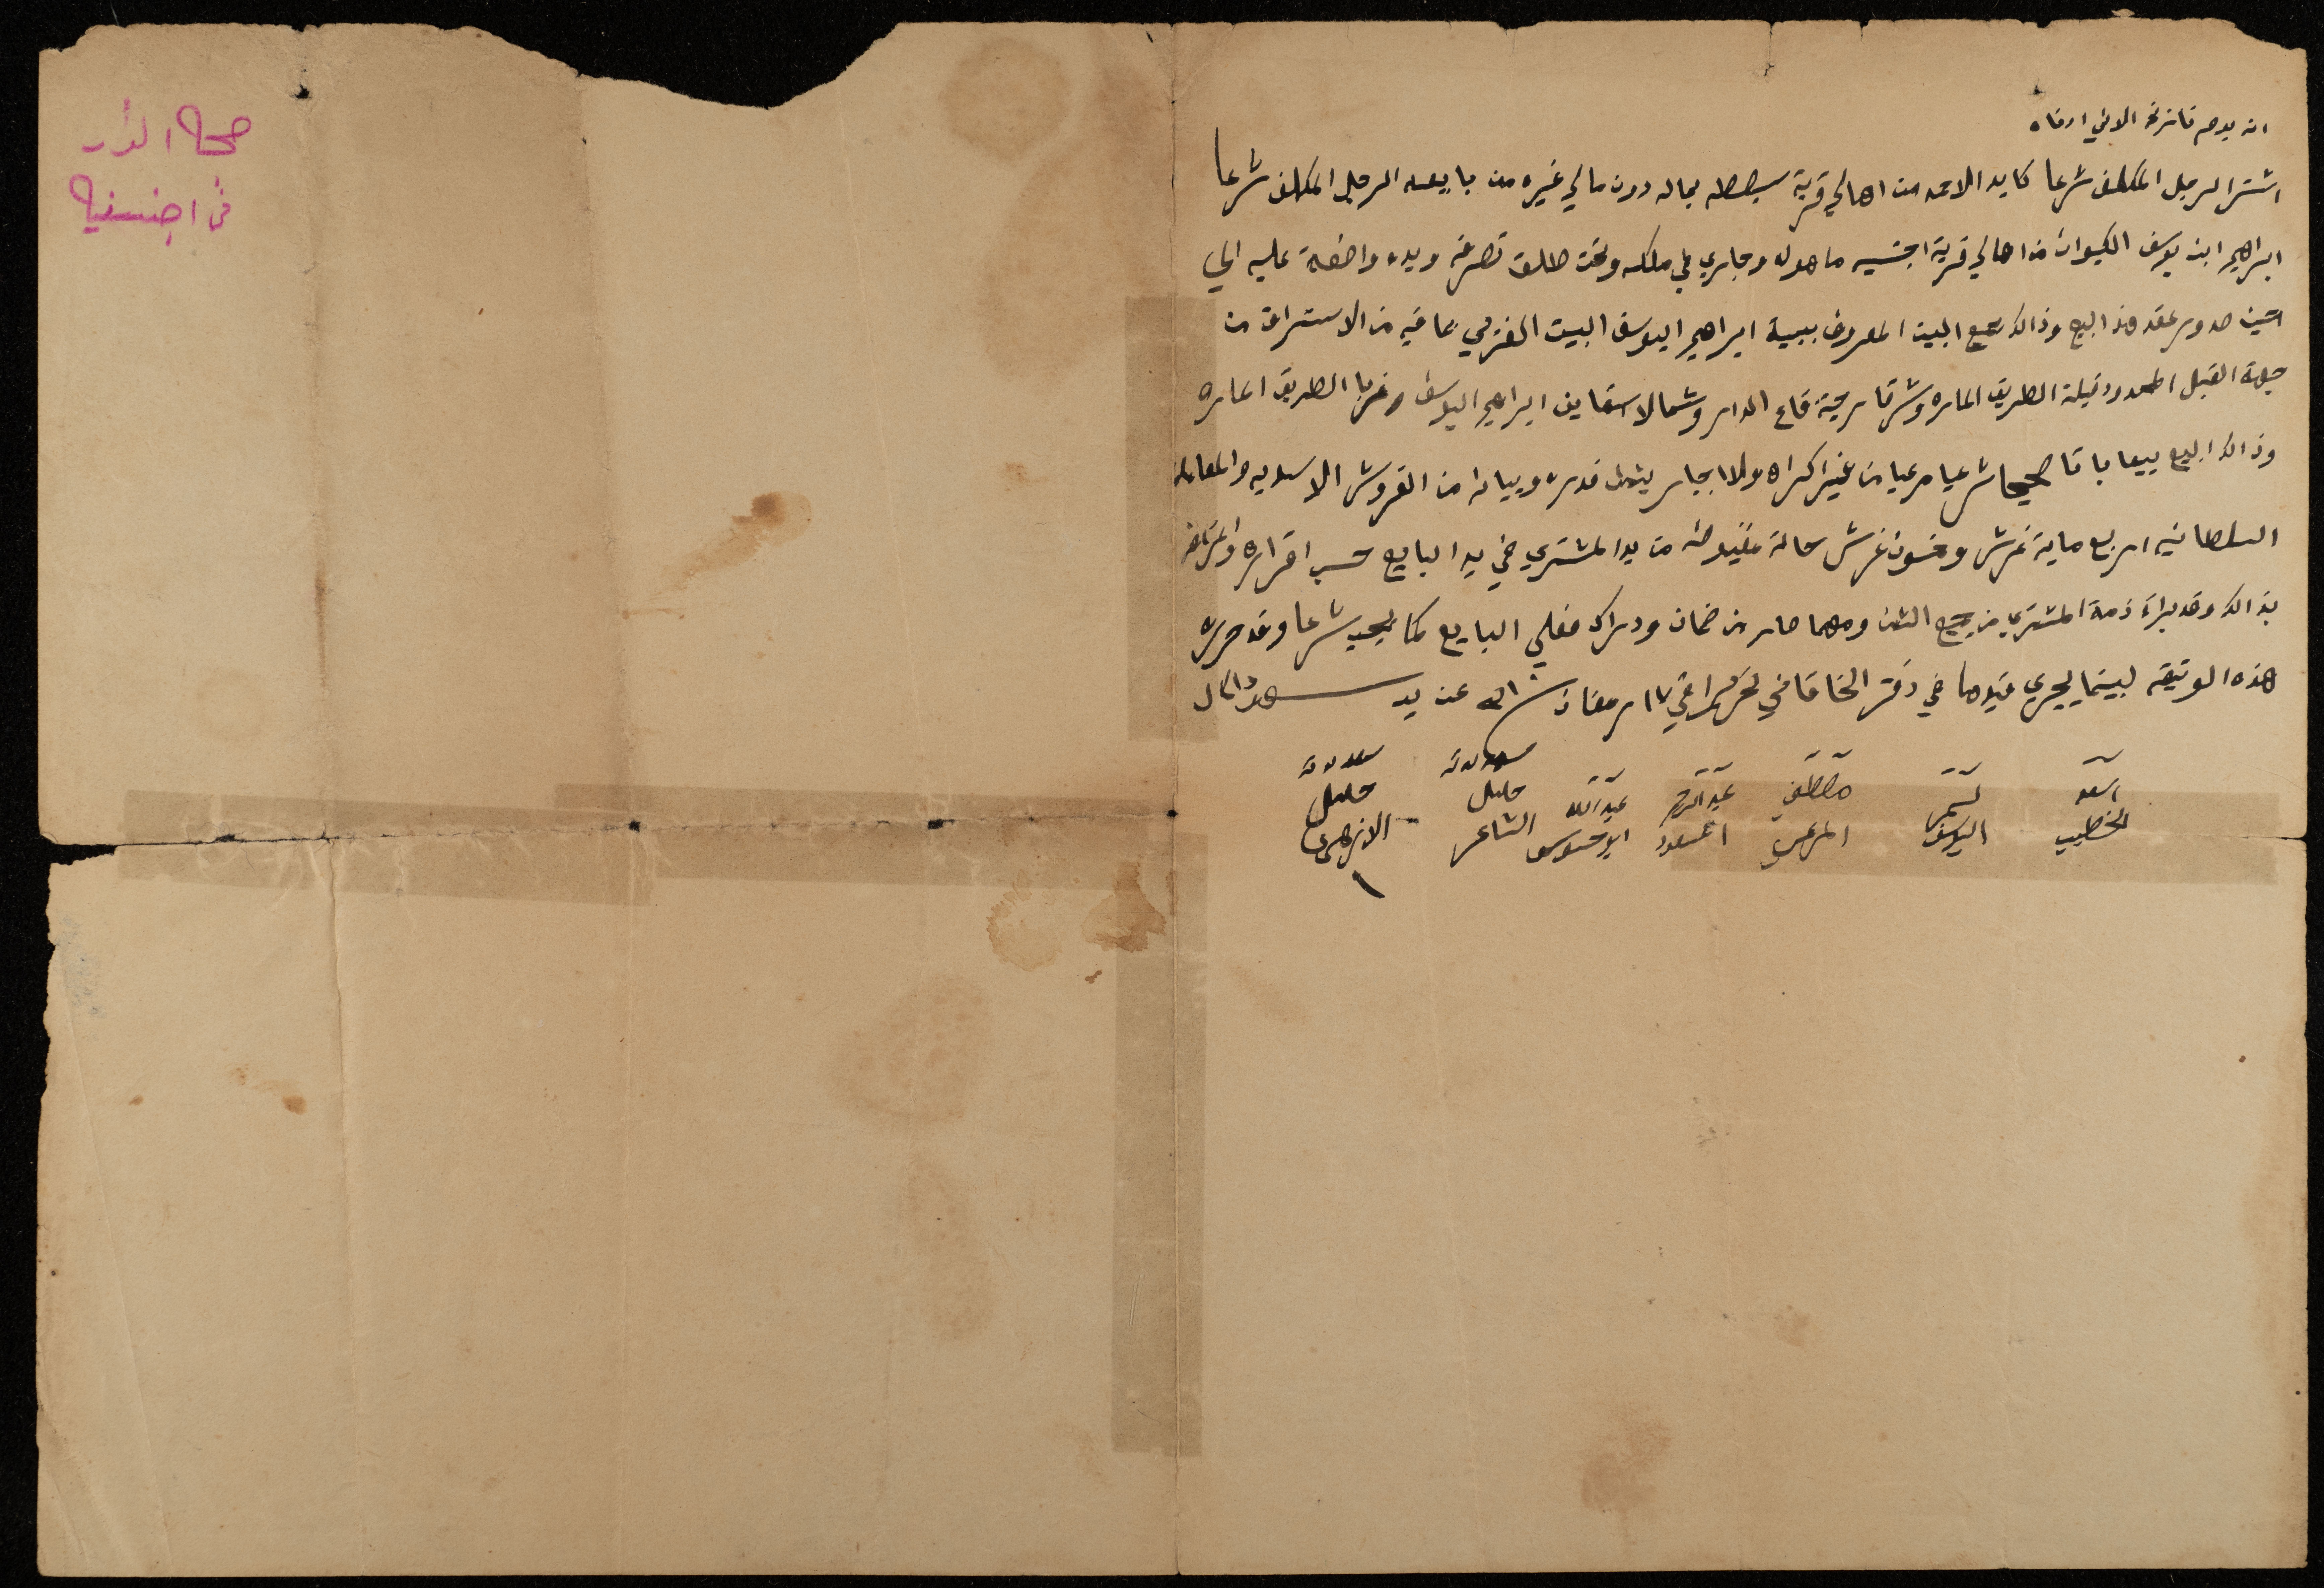 انه يوم تاريخه الاتي ادناه
اشترا الرجل المكلف شرعا كايد الاحمد من اهالي قرية بماله دون مالي غيره من بايعه الرجل المكلف شرعا
ابراهيم ابن يوسف الكيوان من اهالي قرية اجنسنيه ما هو له وجاري في ملكه وتحت طلق تصرفه ويده واضعة عليه الي
حين صدور عقد هذا البيع وذالك جميع البيت المعروف ببيت ابراهيم اليوسف البيت الغربي بما فيه من الاستراق من
جهة القبل المحدود قبلة الطريق الماره وشرقا قاع الدار وشمالا ابراهيم اليوسف وغربا الطريق الماره
وذالك البيع بيعا باتا صحيحا شرعيا مرعيا من غير اكراه ولا اجبار بثمن قدره وبيانه من القروش الاسديه والمعامله
السلطانيه اربع ماية غرش وخمسون غرش حالة مقبوضه من يد المشتري في يد البايع حسب اقراره واعترافه
بذالك وقد براة ذمة المشتري من جميع الثمن ومهما صار من ضمان ودراك فعلي البايع كما يجب شرعا وقد حرره
هذه الوثيقه لبينما يجري قيدها في دفتر الخاقاني تحريرا في ١٧ رمضان عن يد شهود الحال
اسعد الخطيب
نمر اليوسف
مصطفي المرعي
عبد الرحيم المسعود
عبد الله
شهد بذلك خليل الشاعر
شهد بذلك خليل الازهري
حجة الدار
في اجنسنيه